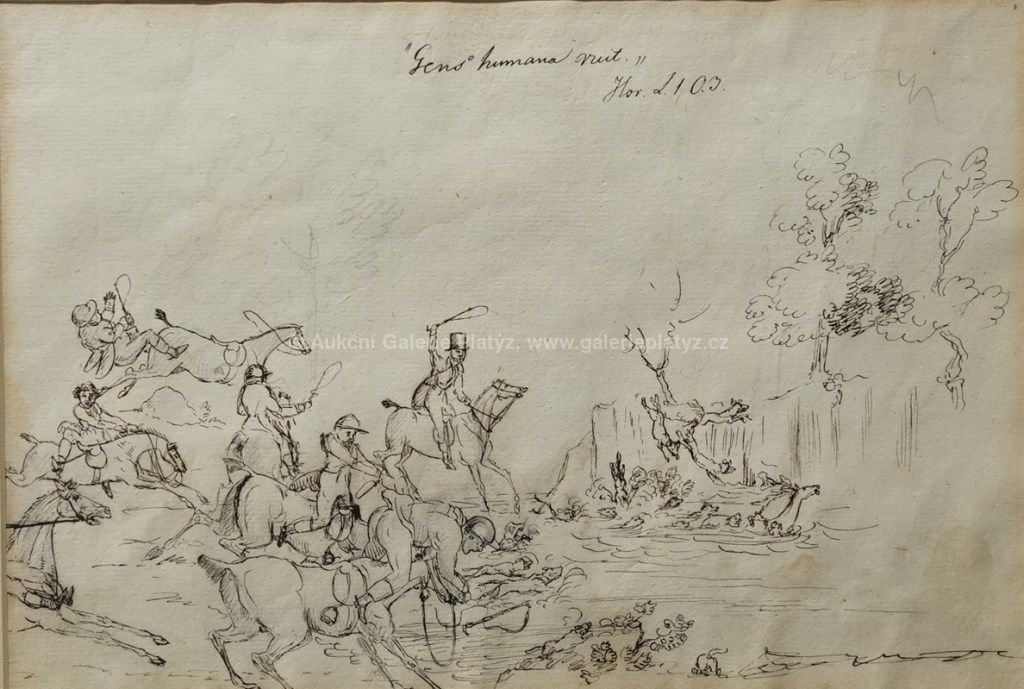 "Gens humana ruit.„
Hor. L.1.O.3.
© Aukční Galerie Platýz, www.galerieplatyz.cz